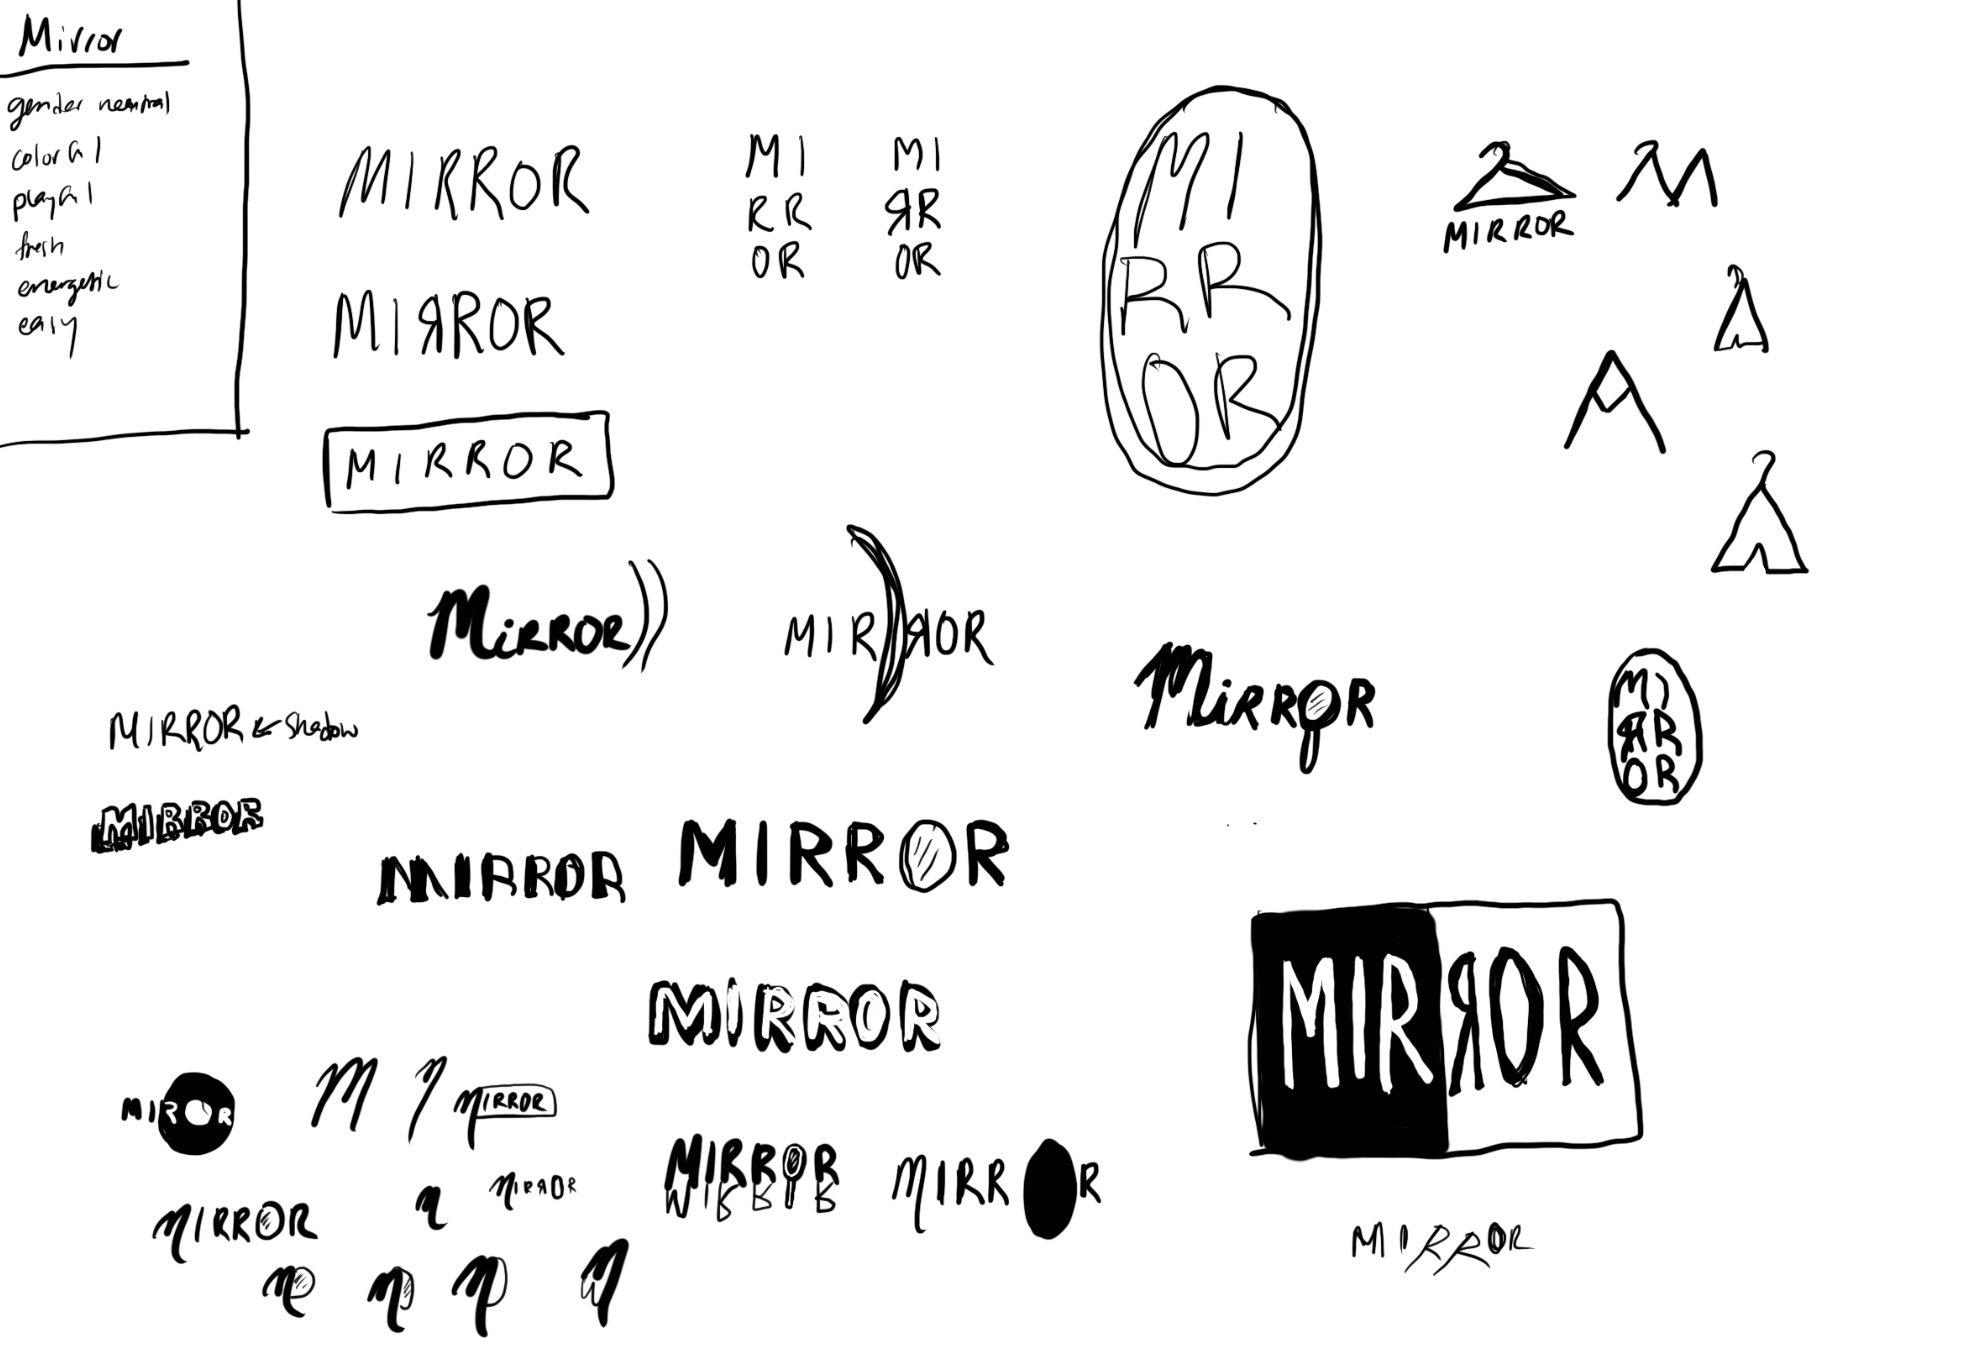 Mirror
gender neutral
colorful
playful
fresh
energetic
easy
MIRROR
MI
RR
OR
MI
ЯR
OR
MI
RR
OR
MIRROR
M
MIЯROR
MIRROR
MiRROR
MIRЯOR
MiRROR
MI
ЯR
OR
MIRROR
shadow
MIRROR
MIRROR
MIRROR
MIRROR
MIRЯOR
MIRROR
M
MIRROR
MIRROR
MIRROR
MIRROR
M
MIЯROR
MIRROR
M
M
M
M